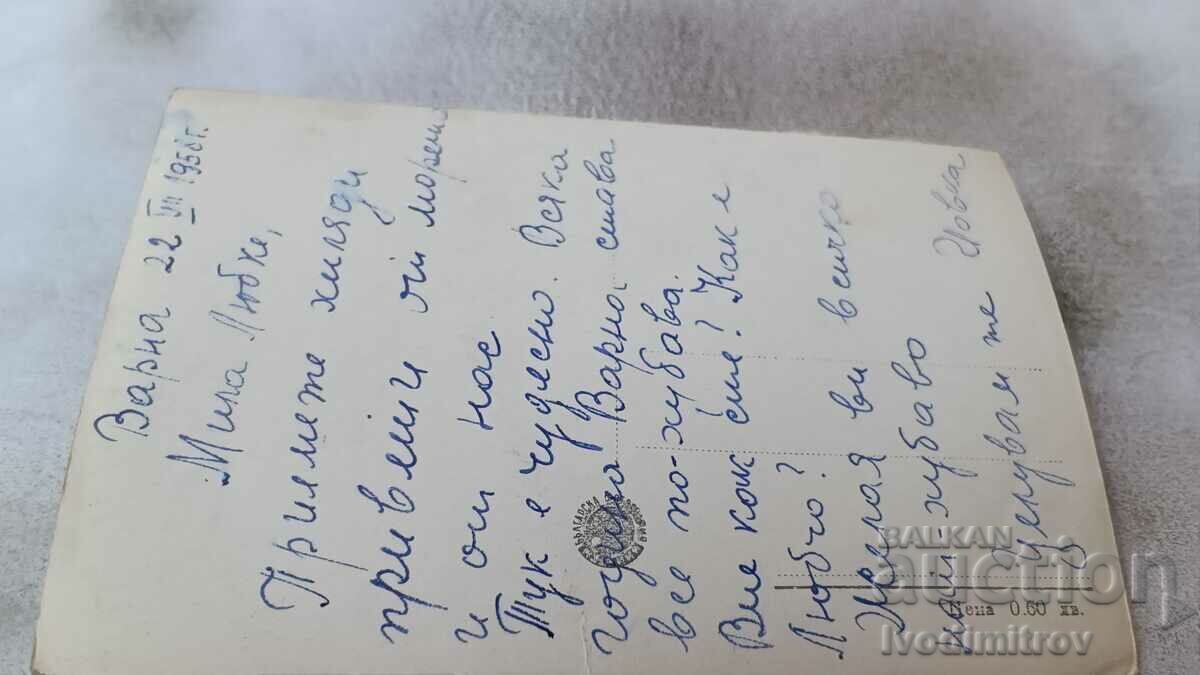 Варна 22 VIII 1958 г.
Мила Любке,
Приемете хиляди
привети от морето
и от нас.
Тук е чудесно. Всяка
година Варна става
все по-хубава.
Вие как сте? Как е
Любчо?
Желая ви всичко
най-хубаво
Целувам те Йовка
Цена 0.60 лв.
BALKAN
auction
Ivodimitrov